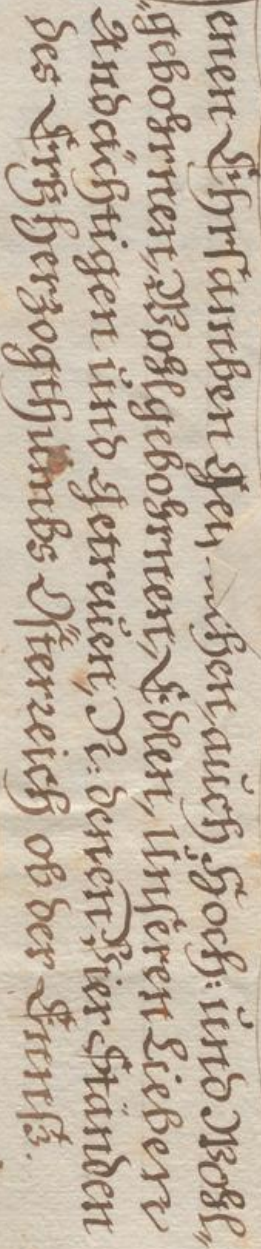 enen Ehrsamben Geistlichen, auch Hoch: und Wohl„
„gebohrnen, Wohlgebohrnen, Edlen, Unseren Lieben
Andächtigen und Getreüen, N: denen Vier Ständen
des Ertzherzogthumbs Österreich ob der Ennß.